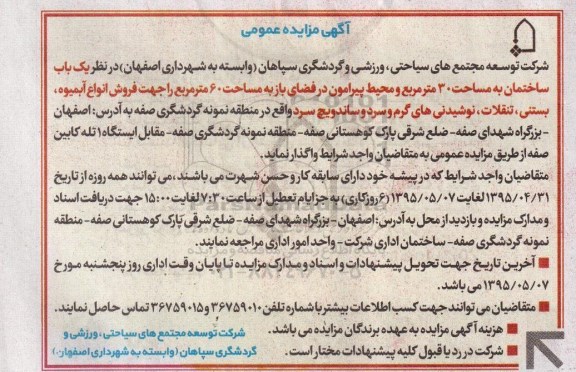 آگهی مزایده عمومی
شرکت توسعه مجتمع های سیاحتی، ورزشی و گردشگری سپاهان (وابسته به شهرداری اصفهان) در نظر یک باب
ساختمان به مساحت ۳۰ مترمربع و محیط پیرامون در فضای باز به مساحت ۶۰ مترمربع را جهت فروش انواع آبمیوه،
بستنی، تنقلات، نوشیدنی های گرم و سرد و ساندویچ سرد واقع در منطقه نمونه گردشگری صفه به آدرس: اصفهان
- بزرگراه شهدای صفه - ضلع شرقی پارک کوهستانی صفه - منطقه نمونه گردشگری صفه - مقابل ایستگاه ۱ تله کابین
صفه از طریق مزایده عمومی به متقاضیان واجد شرایط واگذار نماید.
متقاضیان واجد شرایط که در پیشه خود دارای سابقه کار و حسن شهرت می باشند، می توانند همه روزه از تاریخ
۱۳۹۵/۰۴/۳۱ لغایت ۱۳۹۵/۰۵/۰۷ (۶ روز کاری) به جز ایام تعطیل از ساعت ۷:۳۰ لغایت ۱۵:۰۰ جهت دریافت اسناد
و مدارک مزایده و بازدید از محل به آدرس: اصفهان - بزرگراه شهدای صفه - ضلع شرقی پارک کوهستانی صفه - منطقه
نمونه گردشگری صفه - ساختمان اداری شرکت - واحد امور اداری مراجعه نمایند.
■ آخرین تاریخ جهت تحویل پیشنهادات و اسناد و مدارک مزایده تا پایان وقت اداری روز پنجشنبه مورخ
۱۳۹۵/۰۵/۰۷ می باشد.
■ متقاضیان می توانند جهت کسب اطلاعات بیشتر با شماره تلفن ۳۶۷۵۹۰۱۰ و ۳۶۷۵۹۰۱۵ تماس حاصل نمایند.
■ هزینه آگهی مزایده به عهده برندگان مزایده می باشد.
■ شرکت در رد یا قبول کلیه پیشنهادات مختار است.
شرکت توسعه مجتمع های سیاحتی، ورزشی و
گردشگری سپاهان (وابسته به شهرداری اصفهان)